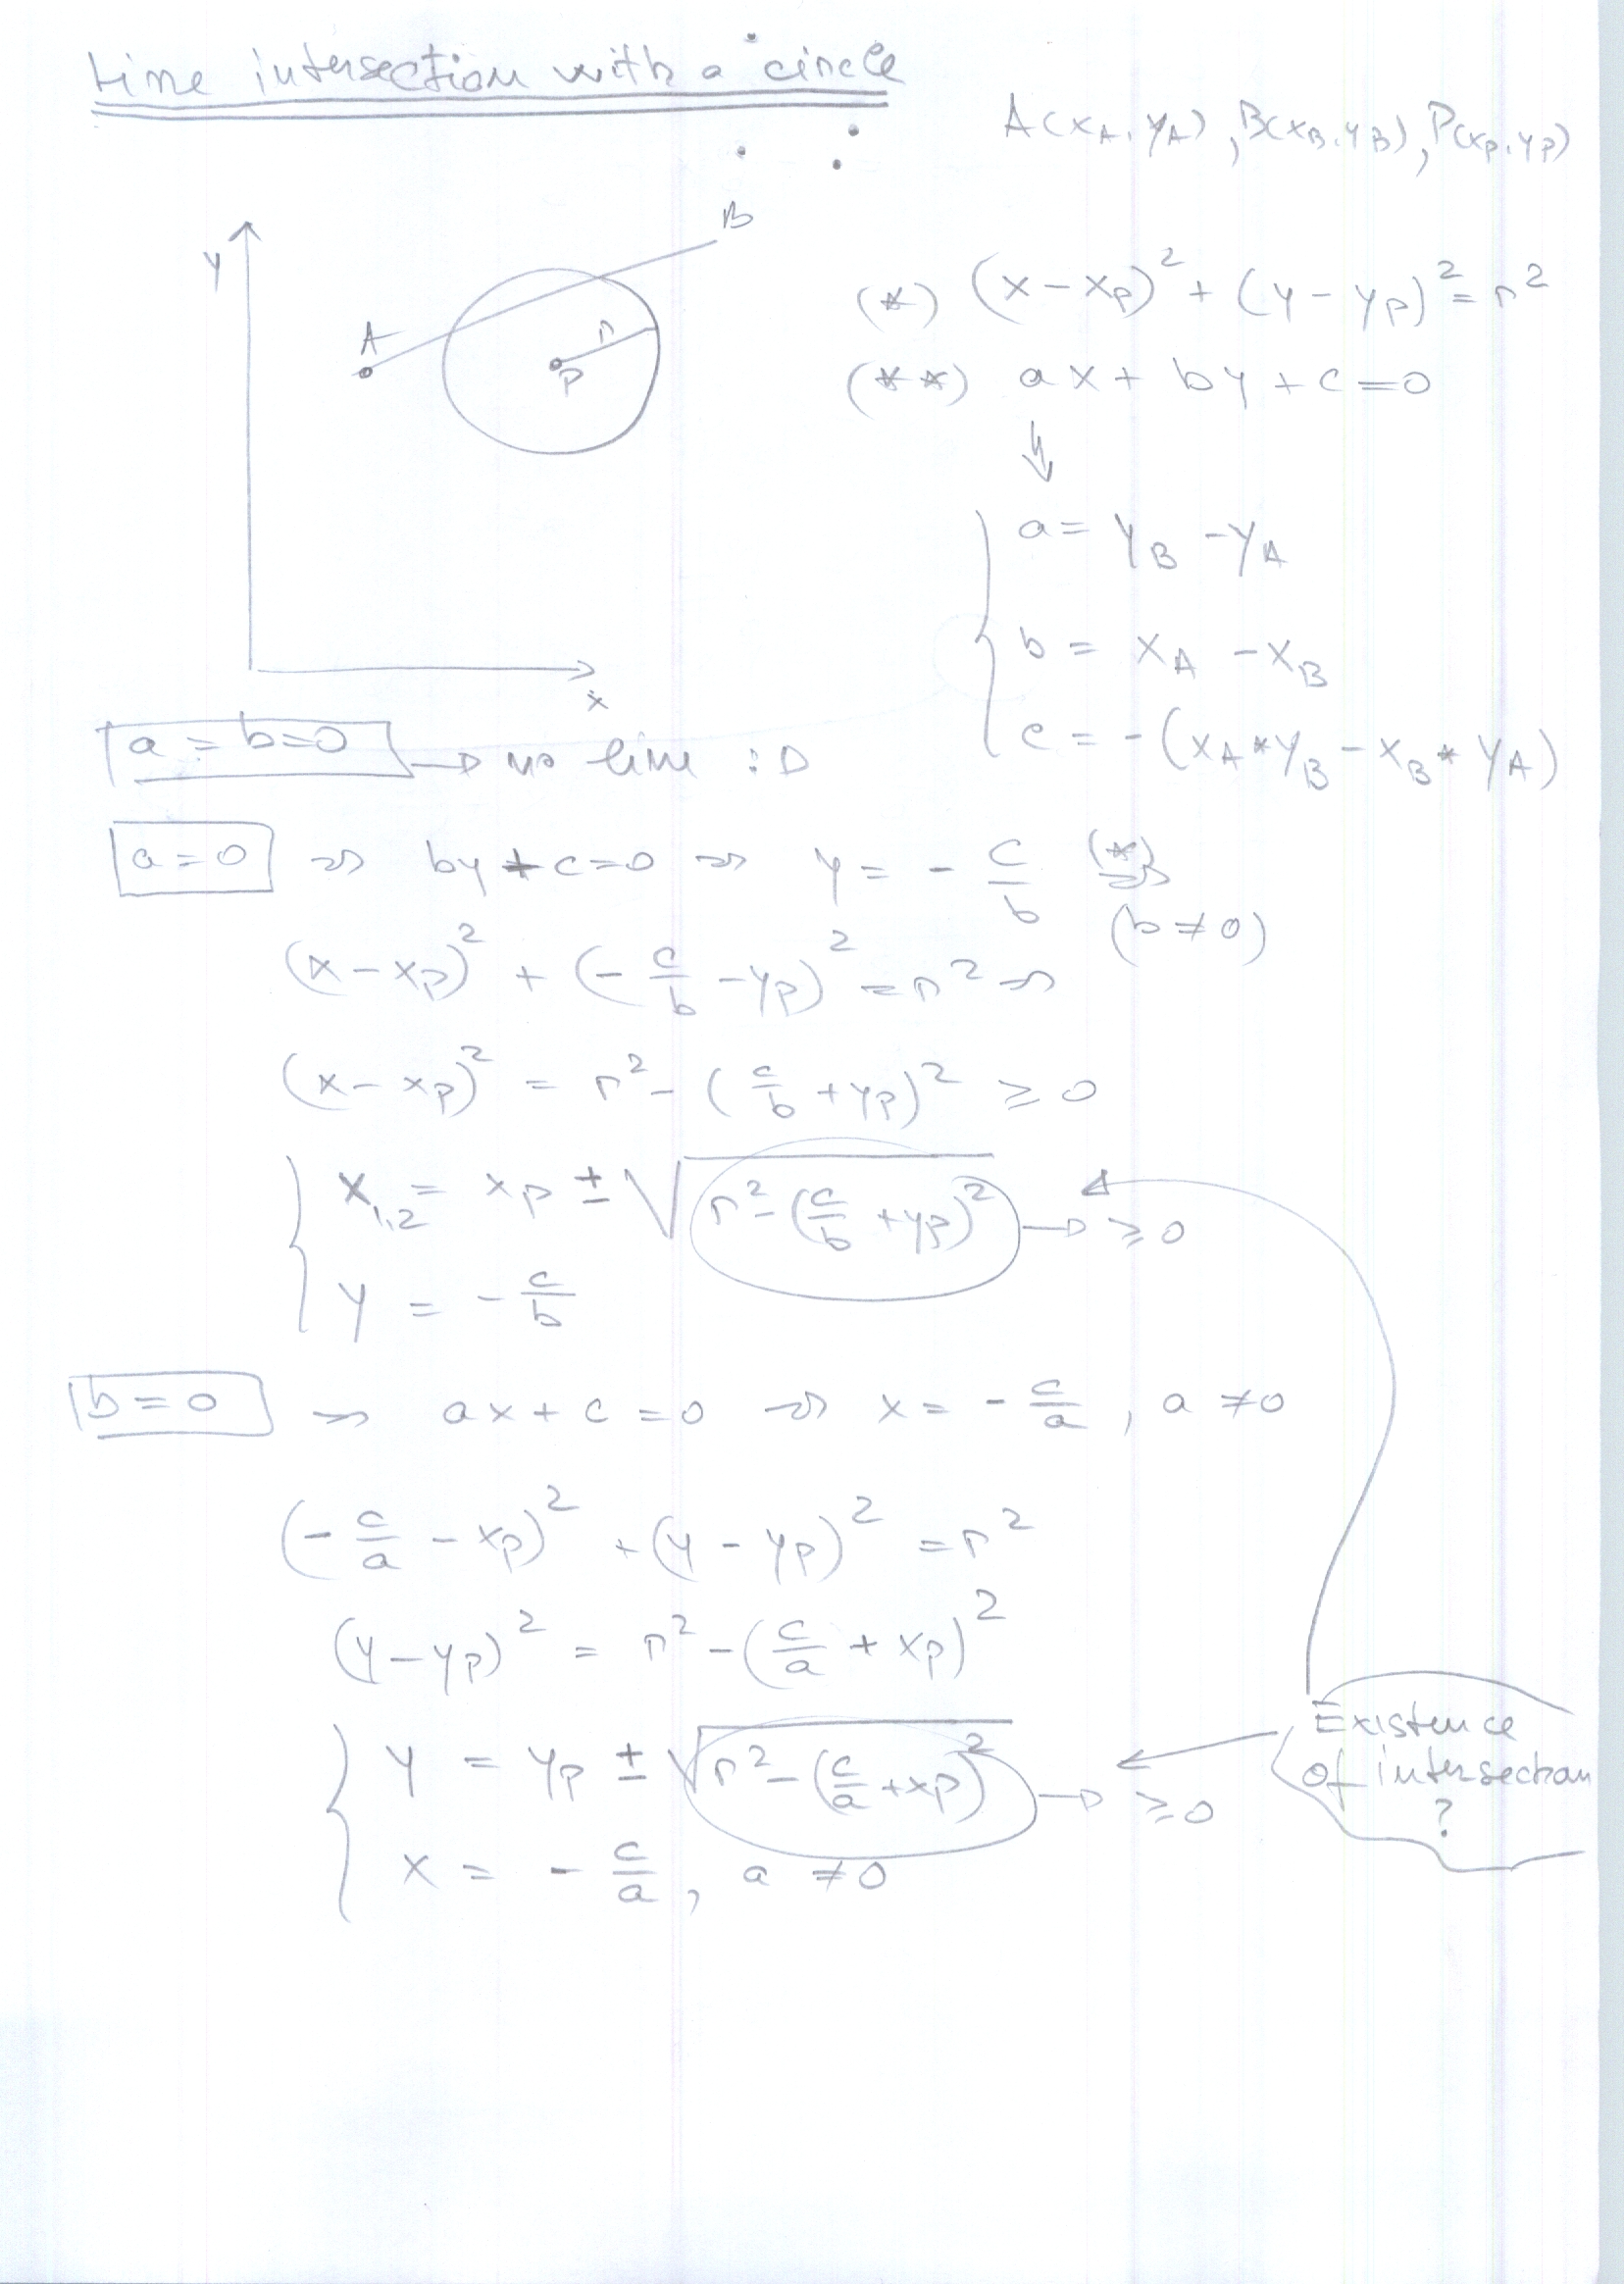 Line intersection with a circle
A(xA, yA), B(xB, yB), P(xP, yP)
y
B
A
r
P
x
(*) (x - xP)² + (y - yP)² = r²
(**) ax + by + c = 0
⇓
a = yB - yA
b = xA - xB
c = - (xA * yB - xB * yA)
a = b = 0 → no line :D
a = 0 ⇒ by + c = 0 ⇒ y = - c/b (*)⇒
(b ≠ 0)
(x - xP)² + (- c/b - yP)² = r² ⇒
(x - xP)² = r² - (c/b + yP)² ≥ 0
x1,2 = xP ± √(r² - (c/b + yP)²) → ≥ 0
y = - c/b
b = 0 ⇒ ax + c = 0 ⇒ x = - c/a, a ≠ 0
(- c/a - xP)² + (y - yP)² = r²
(y - yP)² = r² - (c/a + xP)²
y = yP ± √(r² - (c/a + xP)²) → ≥ 0
x = - c/a, a ≠ 0
Existence
Of intersection
?